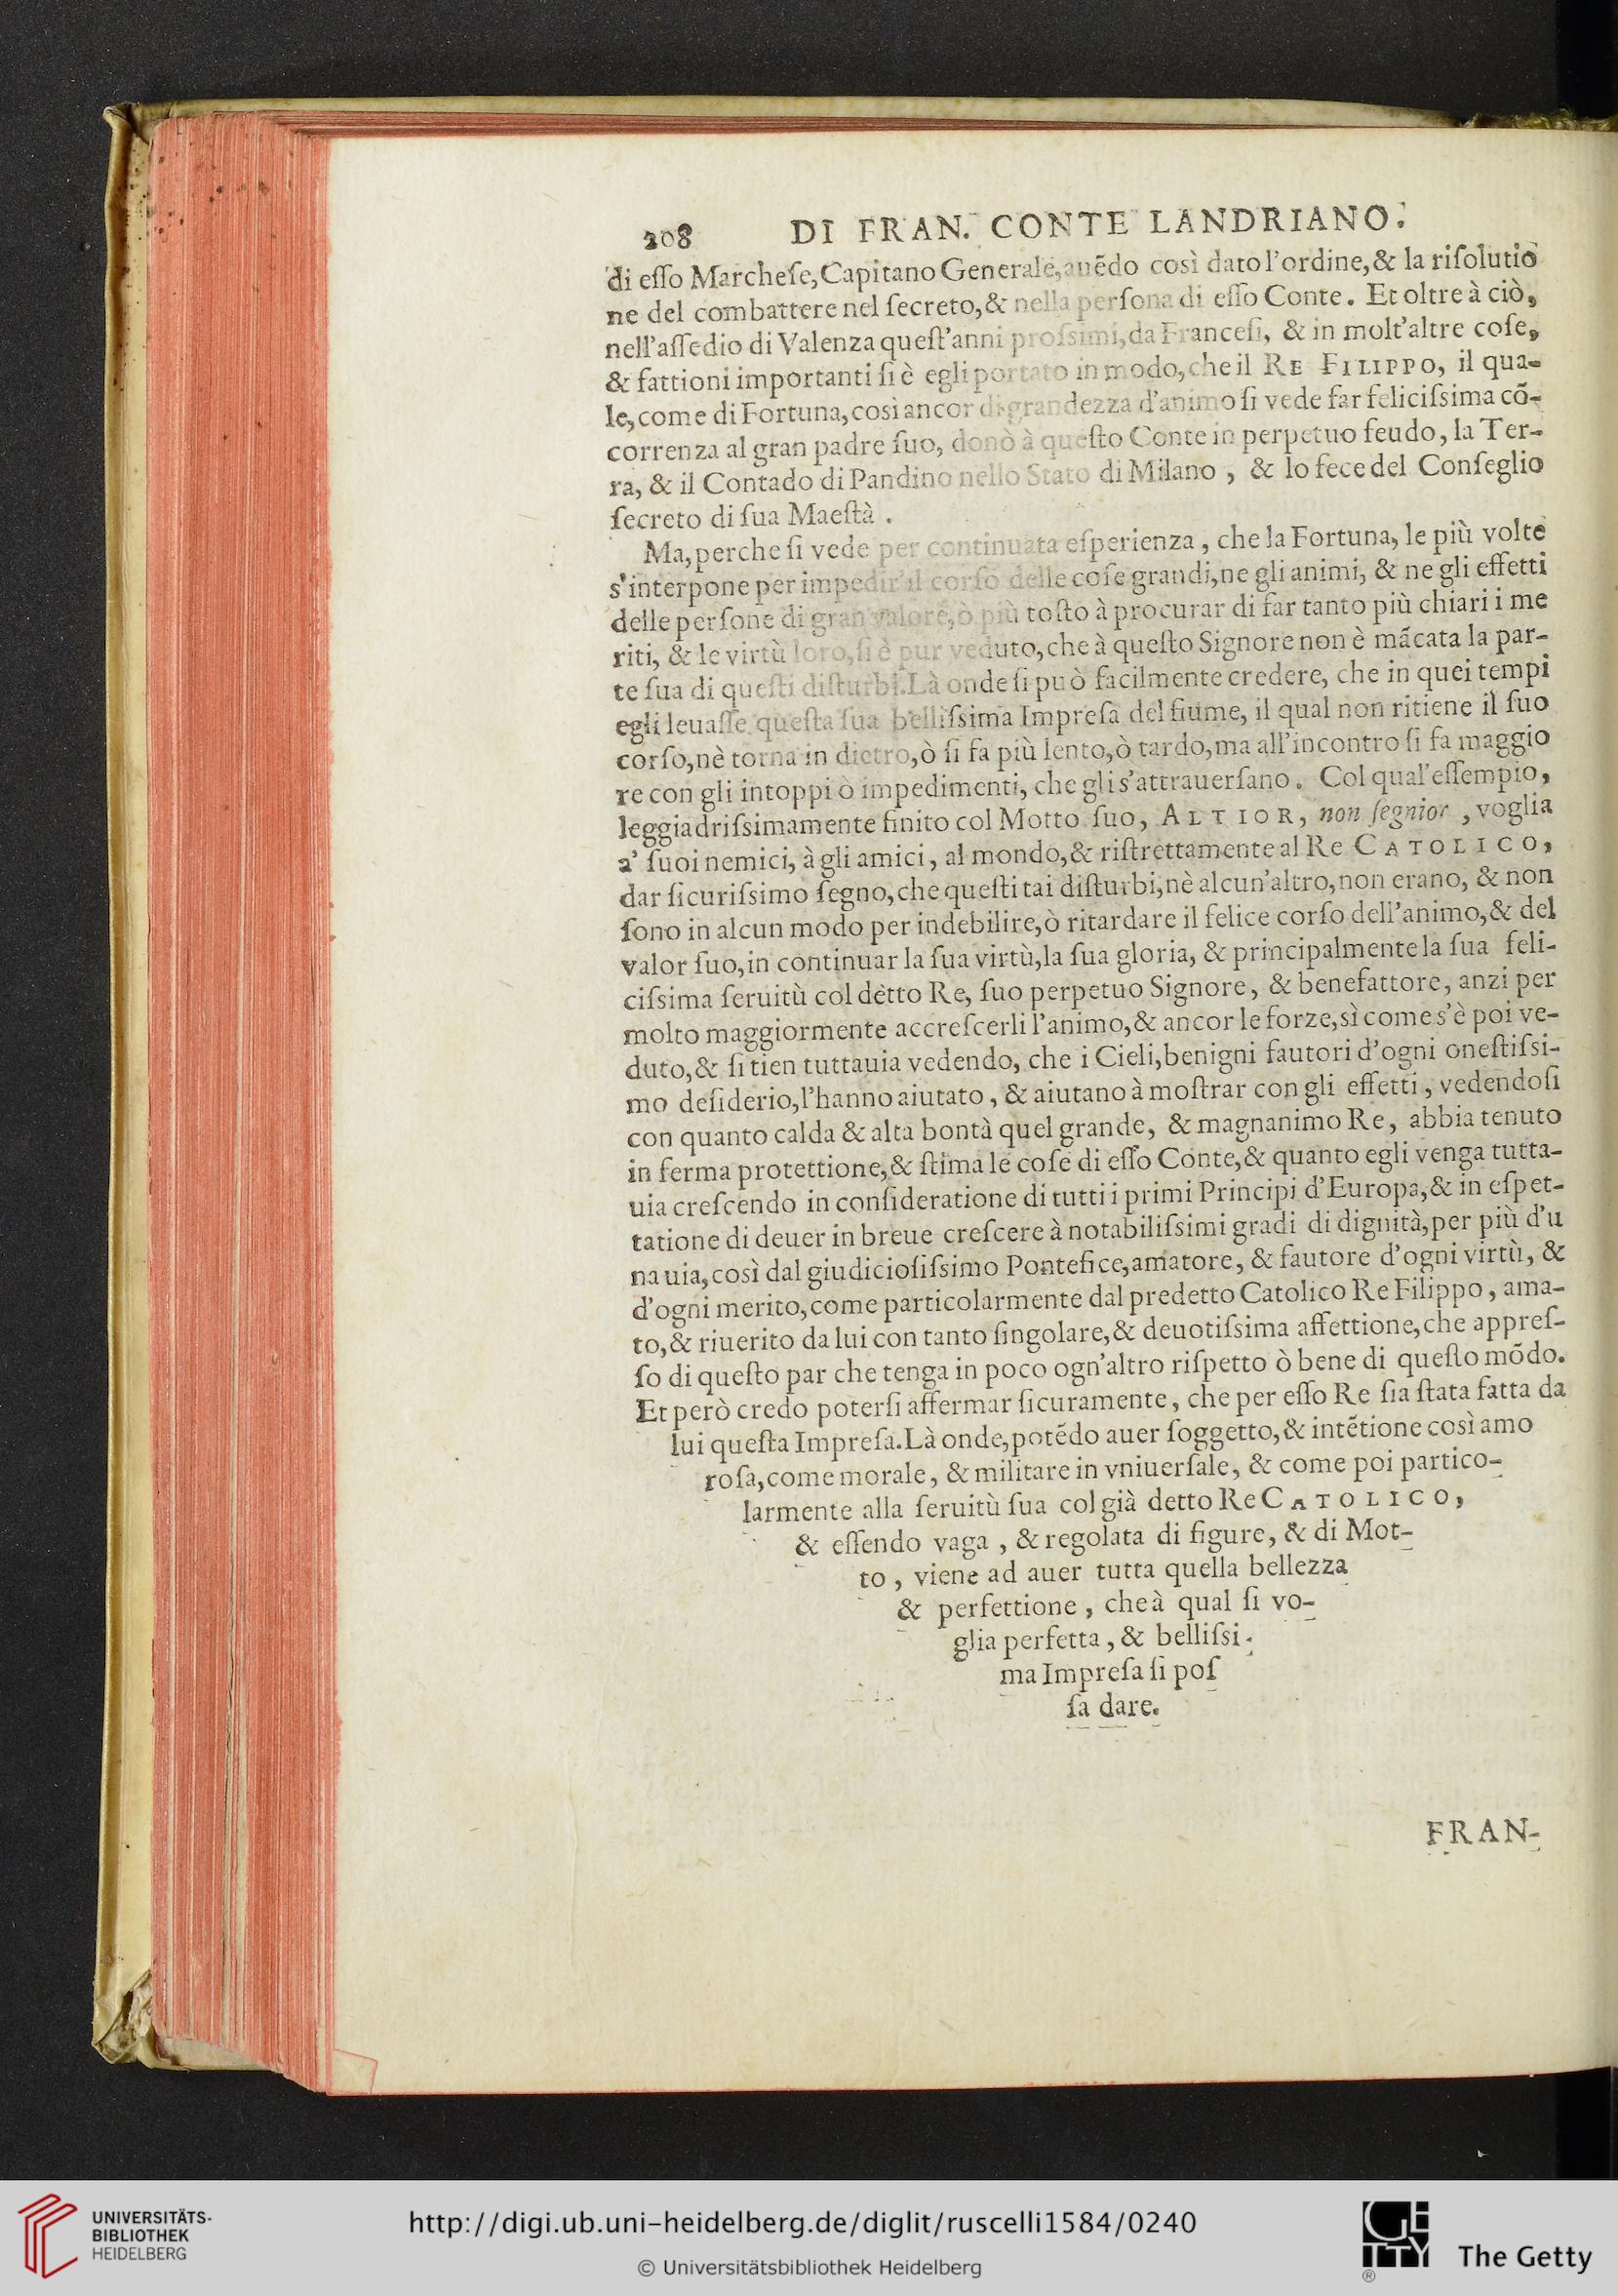 208 DI FRAN. CONTE LANDRIANO.
di eſſo Marcheſe, Capitano Generale, auẽdo così dato l'ordine, & la riſolutio
ne del combattere nel ſecreto, & nella perſona di eſſo Conte. Et oltre à ciò,
nell'aſſedio di Valenza queſt'anni proſsimi, da Franceſi, & in molt'altre coſe,
& fattioni importanti ſi è egli portato in modo, che il RE FILIPPO, il qua-
le, come di Fortuna, così ancor di grandezza d'animo ſi vede far feliciſsima cõ-
correnza al gran padre ſuo, donò à queſto Conte in perpetuo feudo, la Ter-
ra, & il Contado di Pandino nello Stato di Milano, & lo fece del Conſeglio
ſecreto di ſua Maeſtà.
Ma, perche ſi vede per continuata eſperienza, che la Fortuna, le più volte
s'interpone per impedir'il corſo delle coſe grandi, ne gli animi, & ne gli effetti
delle perſone di gran valore, ò più toſto à procurar di far tanto più chiari i me
riti, & le virtù loro, ſi è pur veduto, che à queſto Signore non è mãcata la par-
te ſua di queſti diſturbi. Là onde ſi può facilmente credere, che in quei tempi
egli leuaſſe queſta ſua belliſsima Impreſa del fiume, il qual non ritiene il ſuo
corſo, nè torna in dietro, ò ſi fa più lento, ò tardo, ma all'incontro ſi fa maggio
re con gli intoppi ò impedimenti, che gli s'attrauerſano. Col qual'eſſempio,
leggiadriſsimamente finito col Motto ſuo, ALTIOR, non ſegnior, voglia
a' ſuoi nemici, à gli amici, al mondo, & riſtrettamente al Re CATOLICO,
dar ſicuriſsimo ſegno, che queſti tai diſturbi, nè alcun'altro, non erano, & non
ſono in alcun modo per indebilire, ò ritardare il felice corſo dell'animo, & del
valor ſuo, in continuar la ſua virtù, la ſua gloria, & principalmente la ſua feli-
ciſsima ſeruitù col detto Re, ſuo perpetuo Signore, & benefattore, anzi per
molto maggiormente accreſcerli l'animo, & ancor le forze, sì come s'è poi ve-
duto, & ſi tien tuttauia vedendo, che i Cieli, benigni fautori d'ogni oneſtiſsi-
mo deſiderio, l'hanno aiutato, & aiutano à moſtrar con gli effetti, vedendoſi
con quanto calda & alta bontà quel grande, & magnanimo Re, abbia tenuto
in ferma protettione, & ſtima le coſe di eſſo Conte, & quanto egli venga tutta-
uia creſcendo in conſideratione di tutti i primi Principi d'Europa, & in eſpet-
tatione di deuer in breue creſcere à notabiliſsimi gradi di dignità, per più d'u
na uia, così dal giudicioſiſsimo Pontefice, amatore, & fautore d'ogni virtù, &
d'ogni merito, come particolarmente dal predetto Catolico Re Filippo, ama-
to, & riuerito da lui con tanto ſingolare, & deuotiſsima affettione, che appreſ-
ſo di queſto par che tenga in poco ogn'altro riſpetto ò bene di queſto mõdo.
Et però credo poterſi affermar ſicuramente, che per eſſo Re ſia ſtata fatta da
lui queſta Impreſa. Là onde, potẽdo auer ſoggetto, & intẽtione così amo
roſa, come morale, & militare in vniuerſale, & come poi partico-
larmente alla ſeruitù ſua col già detto Re CATOLICO,
& eſſendo vaga, & regolata di figure, & di Mot-
to, viene ad auer tutta quella bellezza
& perfettione, che à qual ſi vo-
glia perfetta, & belliſsi-
ma Impreſa ſi poſ
ſa dare.
FRAN-
UNIVERSITÄTS-
BIBLIOTHEK
HEIDELBERG
http://digi.ub.uni-heidelberg.de/diglit/ruscelli1584/0240
© Universitätsbibliothek Heidelberg
GETTY
The Getty